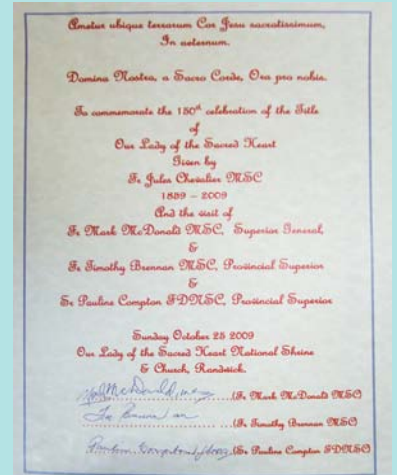 Ametur ubique terrarum Cor Jesu sacratissimum,
In aeternum.
Domina Nostra, a Sacro Corde, Ora pro nobis.
To commemorate the 150th celebration of the Title
of
Our Lady of the Sacred Heart
Given by
Fr Jules Chevalier MSC
1859 – 2009
And the visit of
Fr Mark McDonald MSC, Superior General,
&
Fr Timothy Brennan MSC, Provincial Superior
&
Sr Pauline Compton FDNSC, Provincial Superior
Sunday October 25 2009
Our Lady of the Sacred Heart National Shrine
& Church, Randwick.
Mark McDonald, msc (Fr Mark McDonald MSC)
(Fr Timothy Brennan MSC)
Pauline Compton fdnsc (Sr Pauline Compton FDNSC)